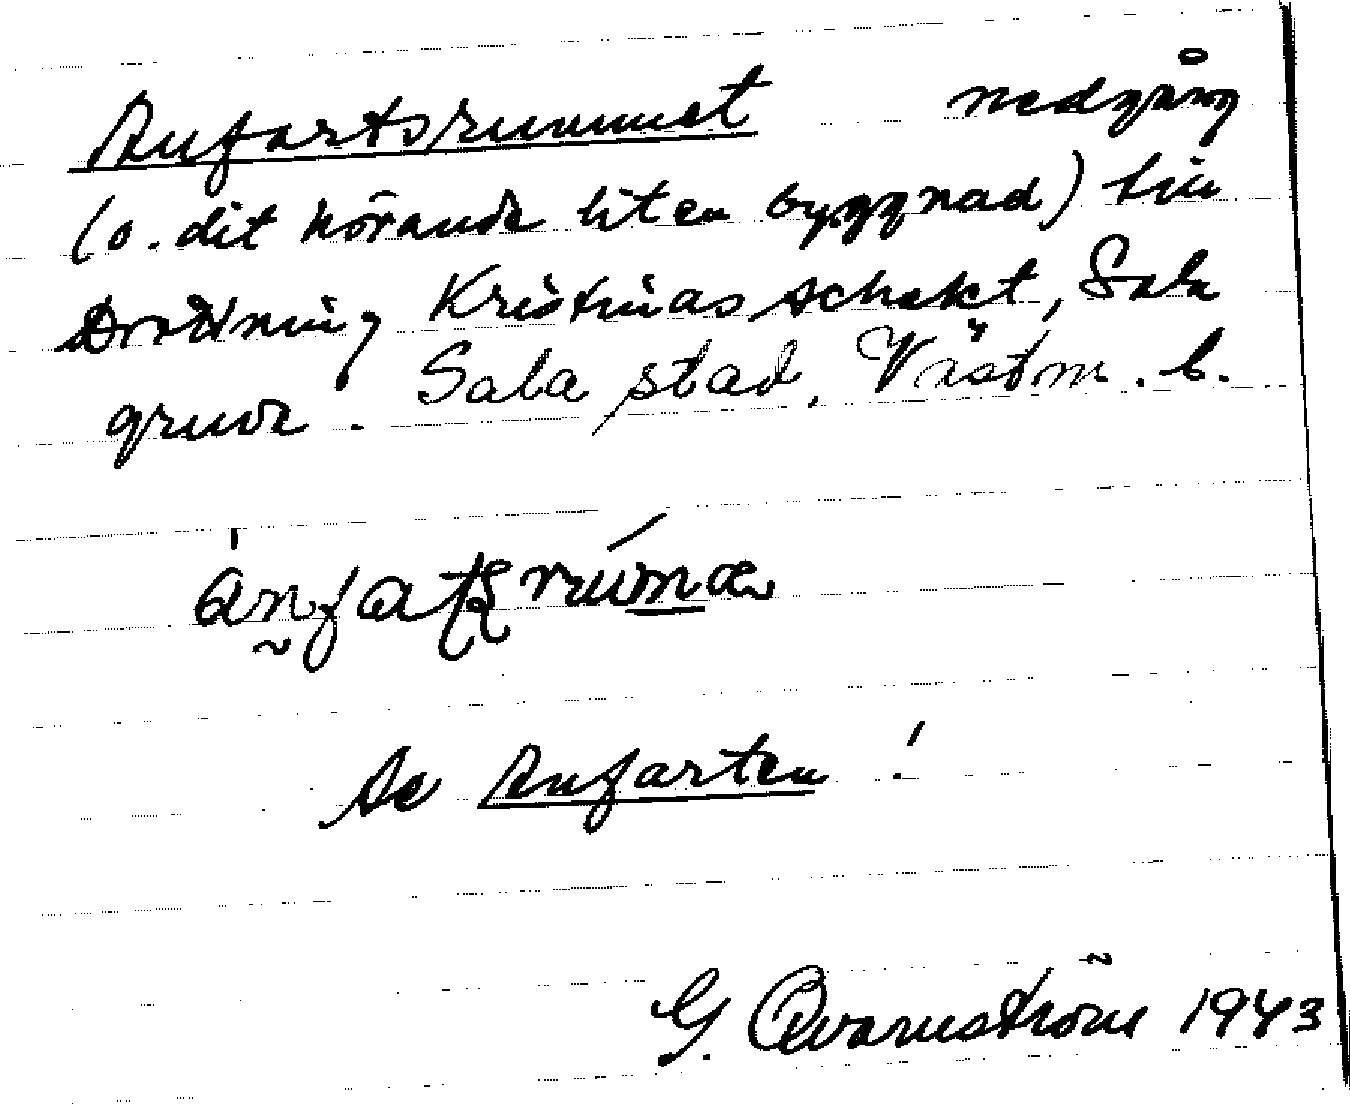 Anfartsrummet nedgång
(o. dit hörande liten byggnad) till
Drottning Kristinas schakt, Sala
gruva. Sala stad, Västm. l.
Se Anfarten !
G. Qvarnström 1943